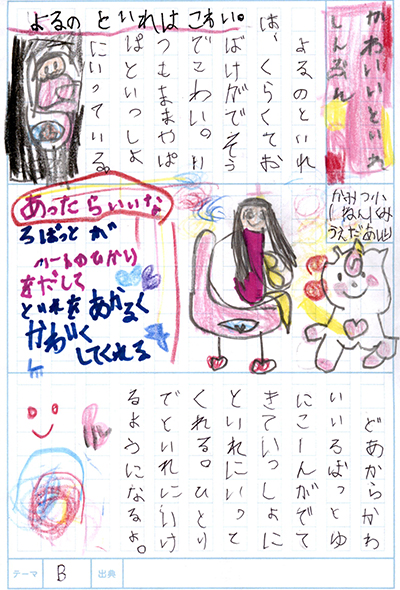 かわいいといれ
しんぶん
かみつ小
1ねん1くみ
うえだあいり
よるの といれは こわい。
よるのといれ
は、くらくてお
ばけがでそう
でこわい。い
つもままやぱ
ぱといっしょ
にいっている。
あったらいいな
ろぼっとが
ハートのひかり
をだして
といれをあかるく
かわいく
してくれる
どあからかわ
いいろぼっとゆ
にこーんがでて
きていっしょに
といれにいって
くれる。ひとり
でといれにいけ
るようになるよ。
テーマ B 出典